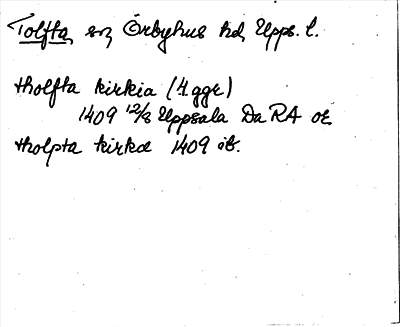 Tolfta sn Örbyhus hd, Upps. l.
tholfta kirkia (4 ggr)
1409 12/3 Uppsala Da RA or.
tholpta kirkæ 1409 ib.